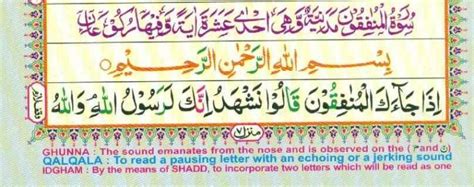 سُوْرَةُ الْمُنٰفِقُوْنَ مَدَنِيَّةٌ وَّهِيَ اِحْدٰى عَشَرَةَ اٰيَةً وَّفِيْهَا رُكُوْعَانِ
بِسْمِ اللهِ الرَّحْمٰنِ الرَّحِيْمِ
اِذَا جَآءَكَ الْمُنٰفِقُوْنَ قَالُوْا نَشْهَدُ اِنَّكَ لَرَسُوْلُ اللهِ ۘ وَاللهُ
منزل ٧
GHUNNA : The sound emanates from the nose and is observed on the ( ن and م )
QALQALA : To read a pausing letter with an echoing or a jerking sound
IDGHAM : By the means of SHADD, to incorporate two letters which will be read as one